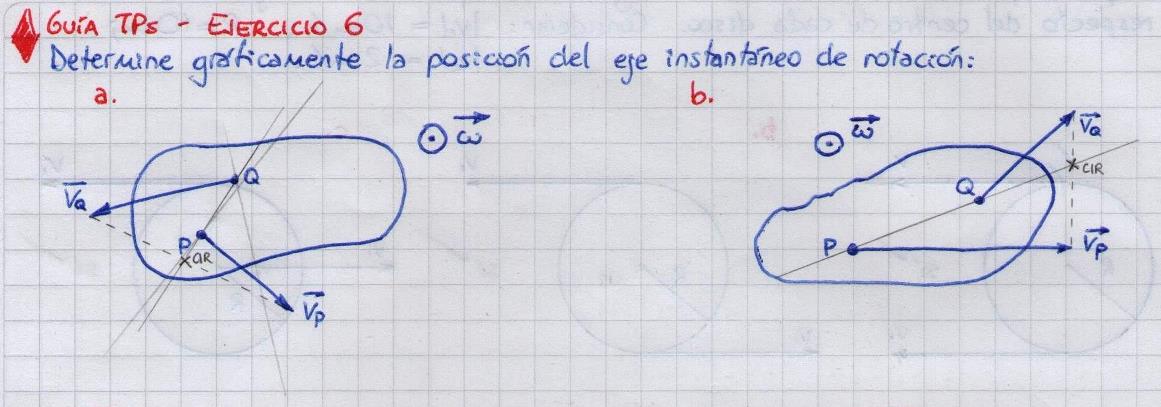 GUÍA TPs - EJERCICIO 6
Determine gráficamente la posición del eje instantáneo de rotación:
a.
b.
ω
VQ
Q
P
CIR
VP
ω
VQ
CIR
Q
P
VP